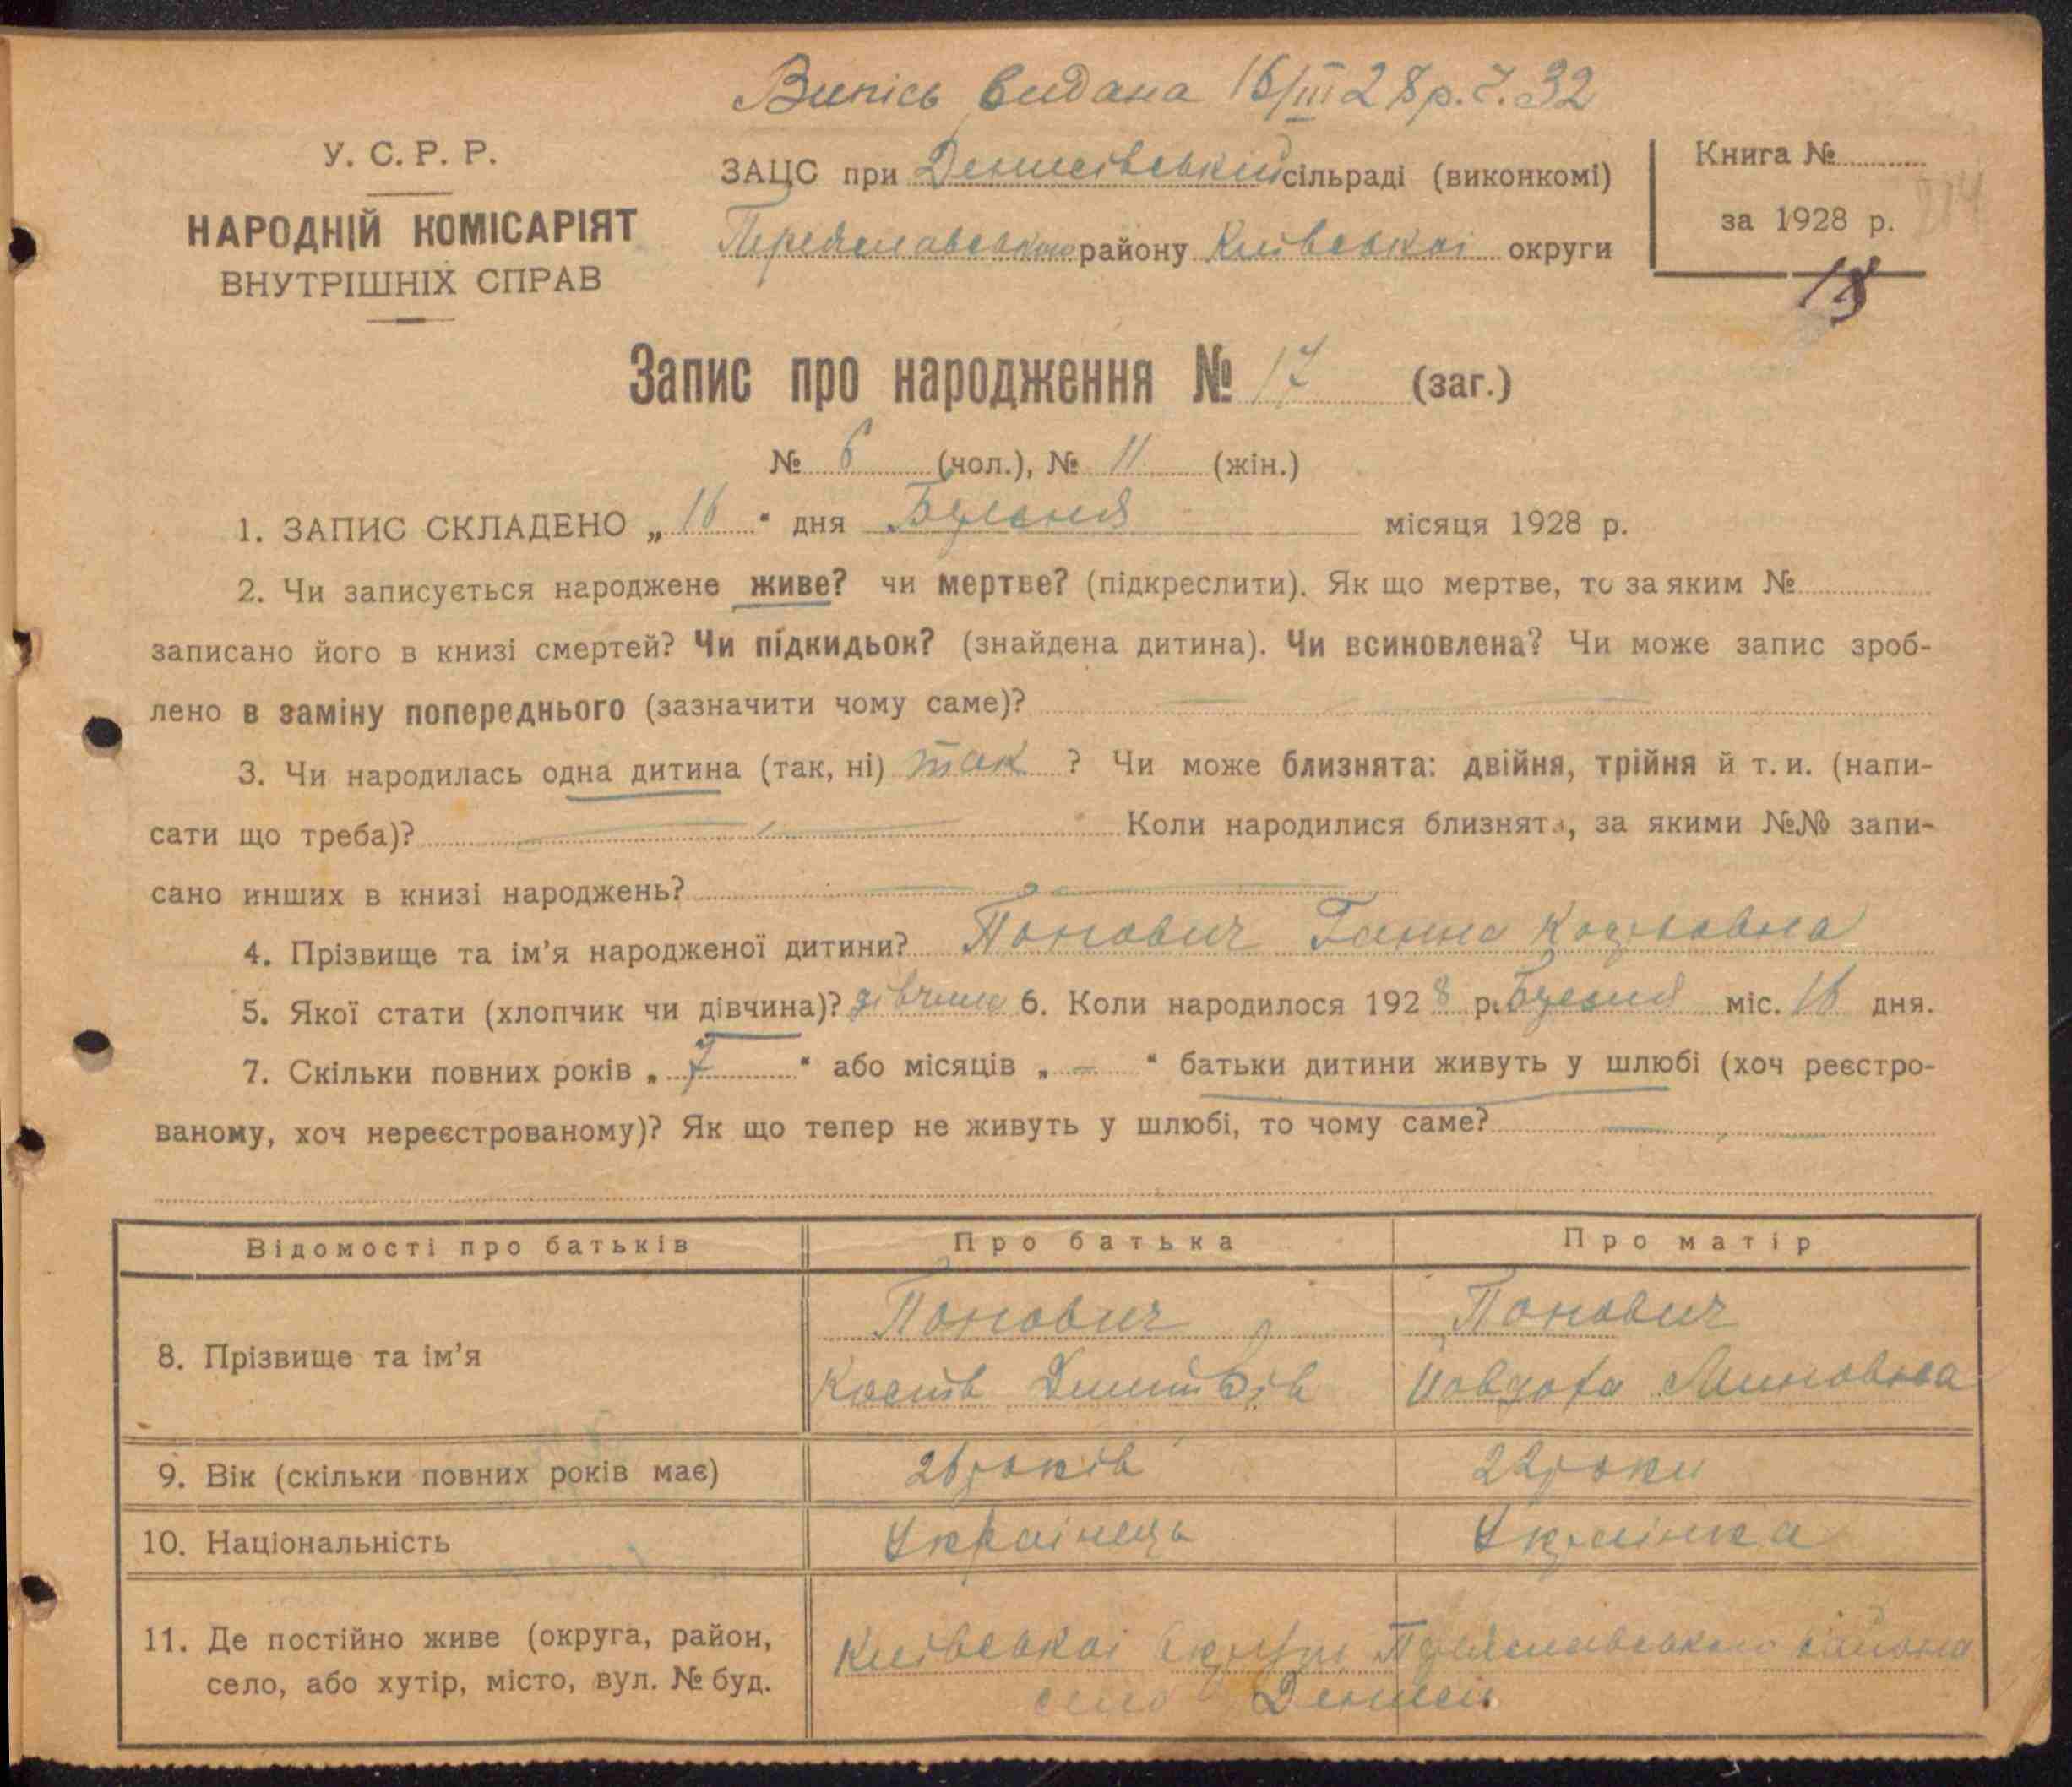 Випісь видана 16/III 28 р. ч. 32
У. С. Р. Р.
НАРОДНІЙ КОМІСАРІЯТ
ВНУТРІШНІХ СПРАВ
ЗАЦС при Денисівський сільраді (виконкомі)
Переяславського району Київської округи
Книга №
за 1928 р.
18
Запис про народження № 17 (заг.)
№ 6 (чол.), № 11 (жін.)
1. ЗАПИС СКЛАДЕНО „ 16 “ дня Березня місяця 1928 р.
2. Чи записується народжене живе? чи мертве? (підкреслити). Як що мертве, то за яким №
записано його в книзі смертей? Чи підкидьок? (знайдена дитина). Чи всиновлена? Чи може запис зроб-
лено в заміну попереднього (зазначити чому саме)?
3. Чи народилась одна дитина (так, ні) так ? Чи може близнята: двійня, трійня й т. и. (напи-
сати що треба)? Коли народилися близнята, за якими №№ запи-
сано инших в книзі народжень?
4. Прізвище та ім’я народженої дитини? Панович Ганна
5. Якої стати (хлопчик чи дівчина)? дівчина 6. Коли народилося 1928 р. Березня міс. 16 дня.
7. Скільки повних років „ 7 “ або місяців „ — “ батьки дитини живуть у шлюбі (хоч реєстро-
ваному, хоч нереєстрованому)? Як що тепер не живуть у шлюбі, то чому саме?
Відомості про батьків Про батька Про матір
8. Прізвище та ім’я
Панович Панович
Дмитрів Йовдоха
9. Вік (скільки повних років має) 26 років 22 роки
10. Національність Українець Українка
11. Де постійно живе (округа, район,
село, або хутір, місто, вул. № буд.
Київської округи Переяславського района
село Дениси